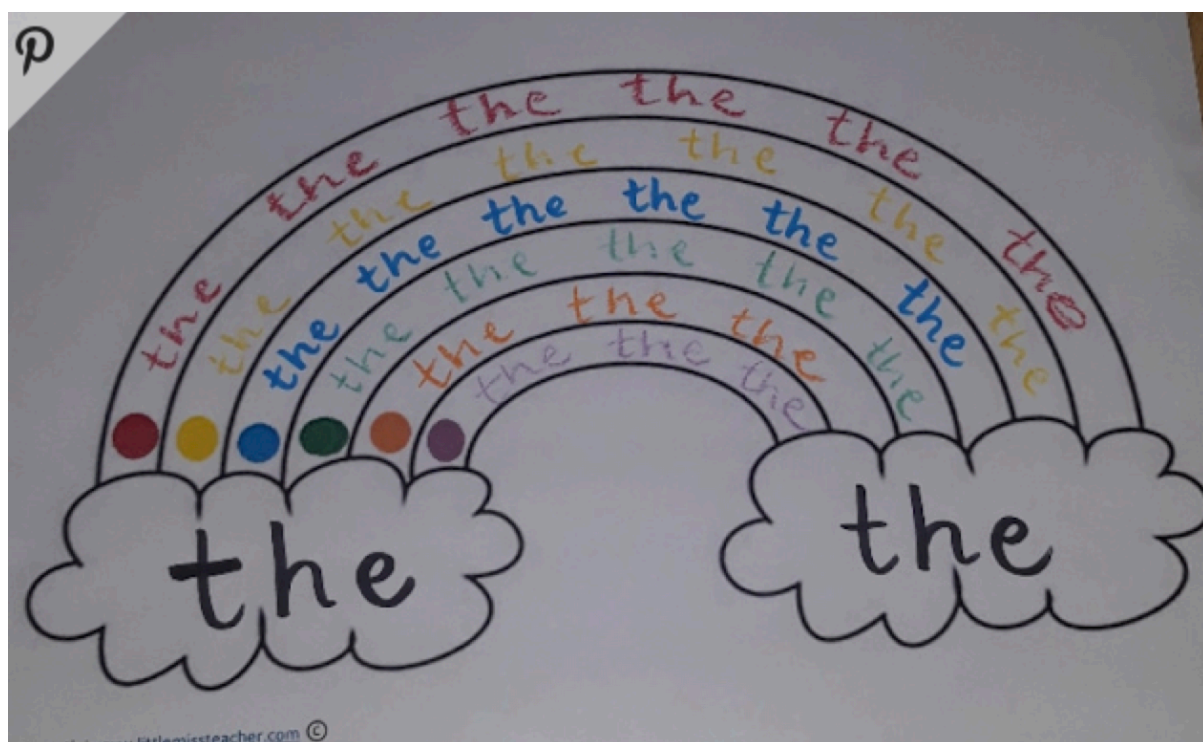 the the the the the the
the the the the the the
the the the the the the
the the the the the
the the the
the the the
the the
littlemissteacher.com ©